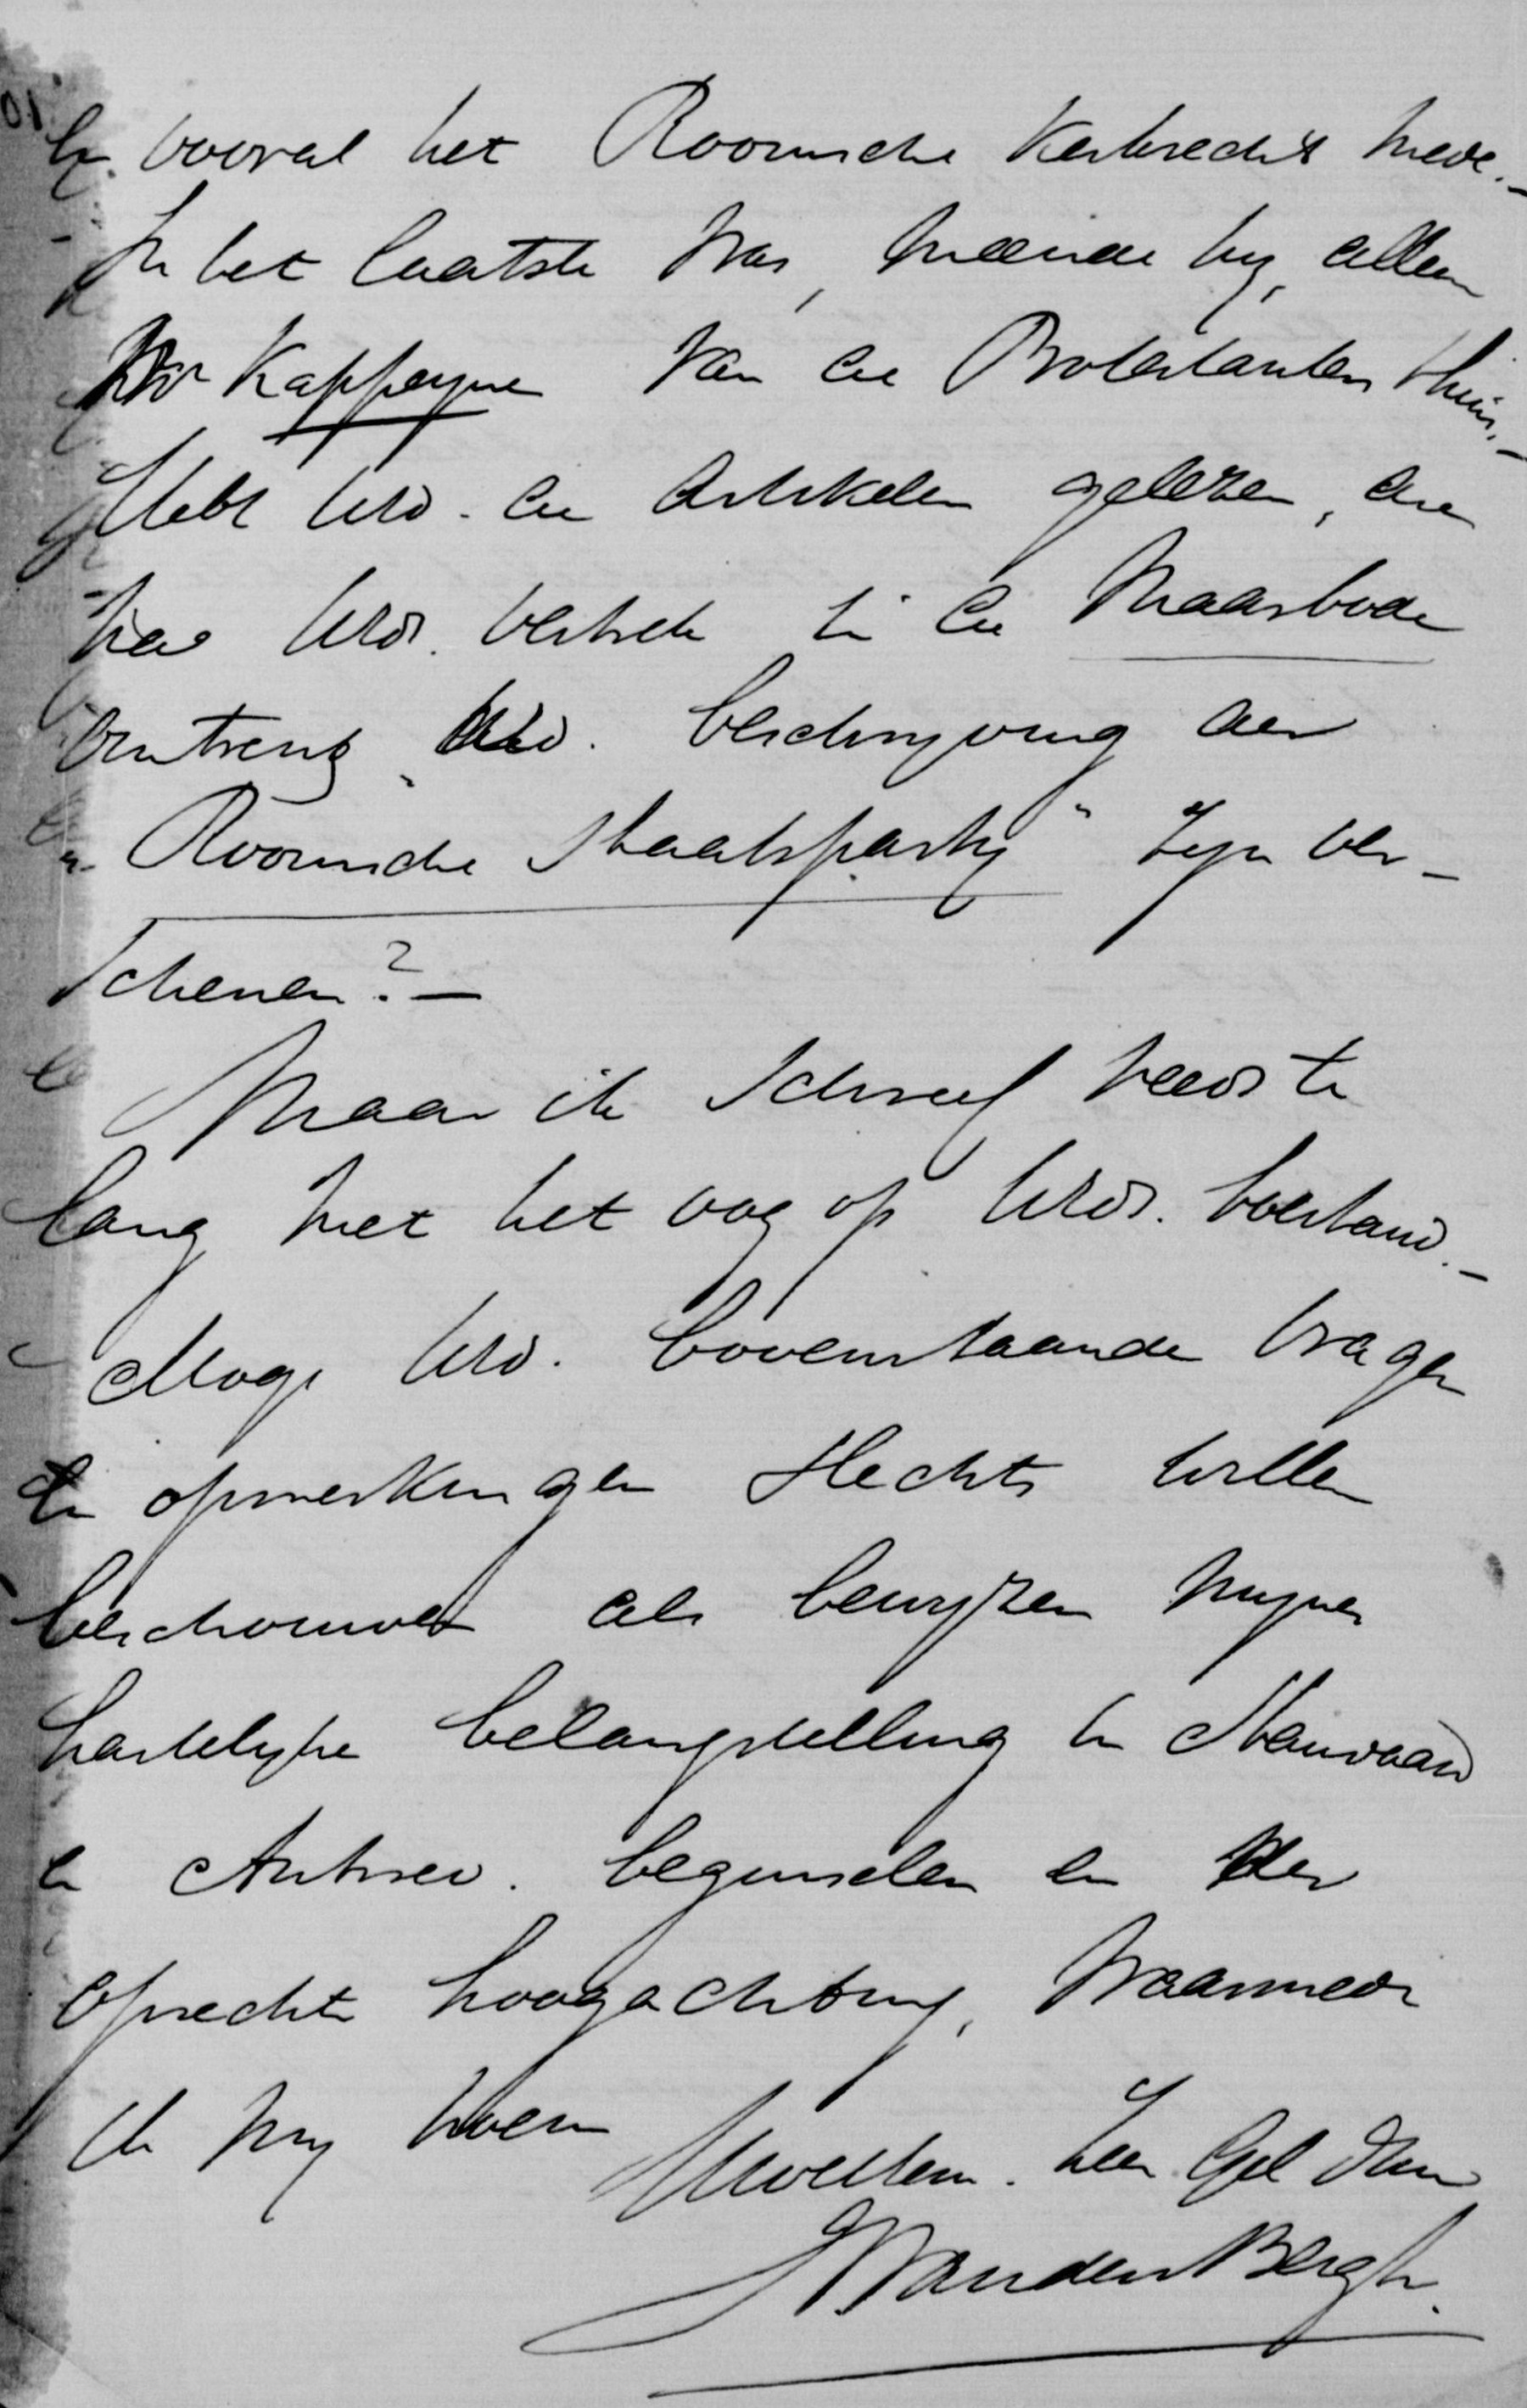 en vooral het Roomsche Kerkrecht mede.–
In het laatste was, meende hij, alleen
Mr Kappeyne van de Protestanten thuis.–
Hebt UEd. de Artikelen gelezen, die
UEdl. in de Maasbode
omtrent UEd. beschrijving der
"Roomsche Staatspartij" zijn ver–
schenen?–
Maar ik schreef reeds te
lang met het oog op UEds. toestand.–
Moge UEd. bovenstaande vragen
en opmerkingen slechts willen
beschouwen als bewijzen mijner
hartelijke belangstelling in Standaard
en Antirev. beginselen en der
oprechte hoogachting, waarmede
ik mij noem
UwelEdn. Zeer Gel Dien
J Van den Bergh.